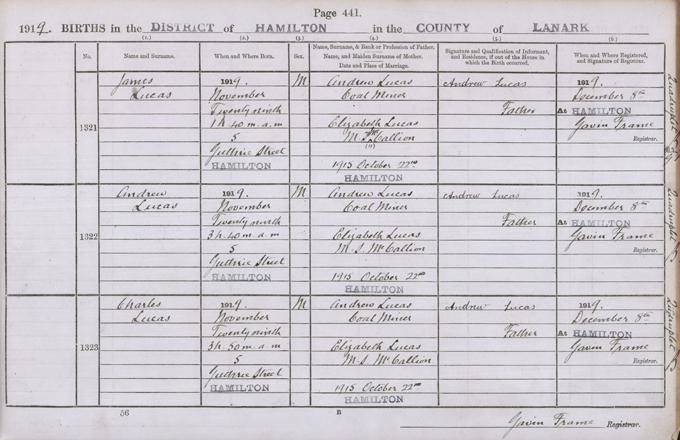 Page 441.
1919. BIRTHS in the DISTRICT of HAMILTON in the COUNTY of LANARK
(1.) (2.) (3.) (4.) (5.) (6.)
No. Name and Surname. When and Where Born. Sex. Name, Surname, & Rank or Profession of Father. Name, and Maiden Surname of Mother. Date and Place of Marriage. Signature and Qualification of Informant, and Residence, if out of the House in which the Birth occurred. When and Where Registered, and Signature of Registrar.
1321
James
Lucas
1919.
November
Twenty ninth
1 h 40 m. a.m
5
Guthrie Street
HAMILTON
M
Andrew Lucas
Coal Miner
Elizabeth Lucas
M. S. McCallion
1915 October 22nd
HAMILTON
Andrew Lucas
Father
1919.
December 8th
At HAMILTON
Gavin Frame
Registrar.
1322
Andrew
Lucas
1919.
November
Twenty ninth
3 h 40 m. a.m
5
Guthrie Street
HAMILTON
M
Andrew Lucas
Coal Miner
Elizabeth Lucas
M. S. McCallion
1915 October 22nd
HAMILTON
Andrew Lucas
Father
1919.
December 8th
At HAMILTON
Gavin Frame
Registrar.
1323
Charles
Lucas
1919.
November
Twenty ninth
3 h 50 m. a.m
5
Guthrie Street
HAMILTON
M
Andrew Lucas
Coal Miner
Elizabeth Lucas
M. S. McCallion
1915 October 22nd
HAMILTON
Andrew Lucas
Father
1919.
December 8th
At HAMILTON
Gavin Frame
Registrar.
56 B
Gavin Frame Registrar.